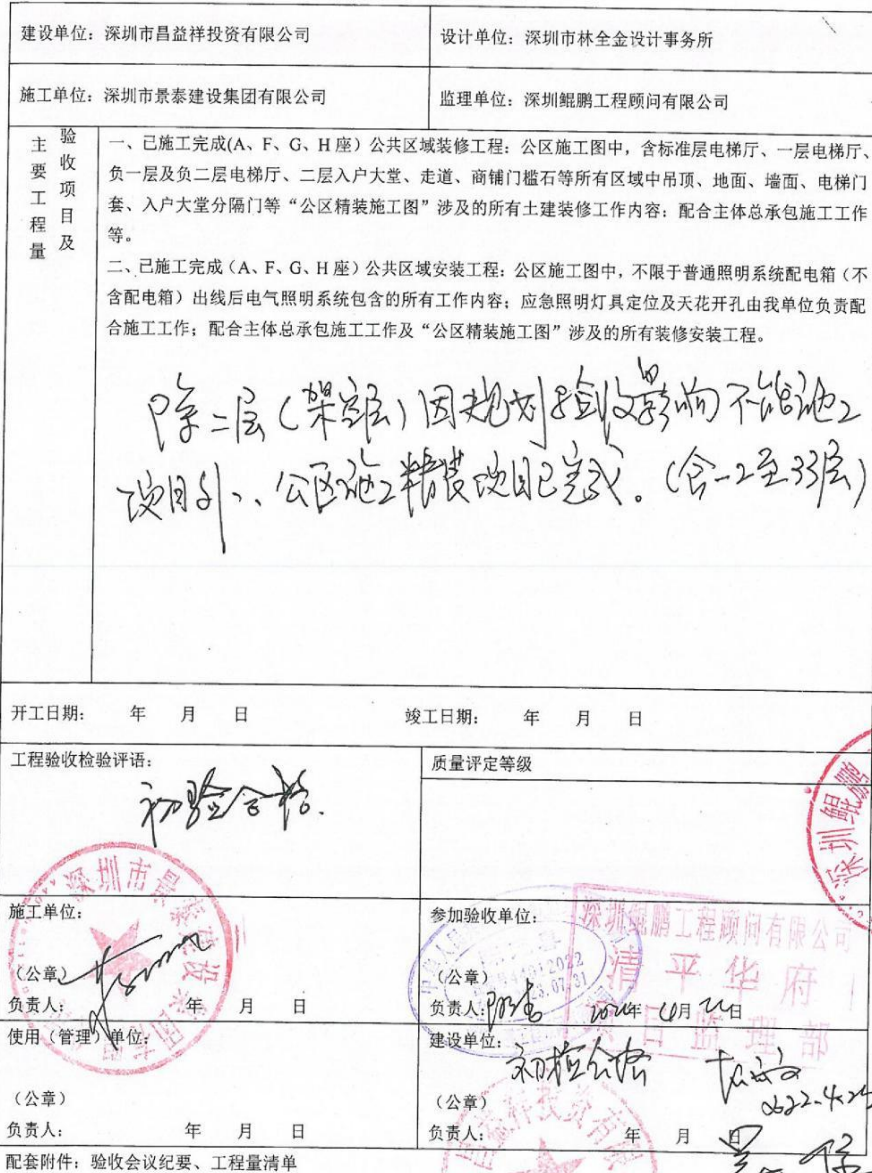 建设单位：深圳市昌益祥投资有限公司
设计单位：深圳市林全金设计事务所
施工单位：深圳市景泰建设集团有限公司
监理单位：深圳鲲鹏工程顾问有限公司
验收项目及
主要工程量
一、已施工完成(A、F、G、H 座）公共区域装修工程：公区施工图中，含标准层电梯厅、一层电梯厅、
负一层及负二层电梯厅、二层入户大堂、走道、商铺门槛石等所有区域中吊顶、地面、墙面、电梯门
套、入户大堂分隔门等“公区精装施工图”涉及的所有土建装修工作内容；配合主体总承包施工工作
等。
二、已施工完成（A、F、G、H 座）公共区域安装工程：公区施工图中，不限于普通照明系统配电箱（不
含配电箱）出线后电气照明系统包含的所有工作内容；应急照明灯具定位及天花开孔由我单位负责配
合施工工作；配合主体总承包施工工作及“公区精装施工图”涉及的所有装修安装工程。
除二层（架空层）因规划验收的影响不能施工
项目外、公区施工精装项目已完成。（含-2至33层）
开工日期： 年 月 日
竣工日期： 年 月 日
工程验收检验评语：
初验合格.
质量评定等级
深圳鲲鹏
深圳市景泰建设集团有限
施工单位：
（公章）
负责人： 年 月 日
参加验收单位：
深圳鲲鹏工程顾问有限公司
清平华府
项目监理部
（公章）
负责人： 年 月 日
使用（管理）单位：
（公章）
负责人： 年 月 日
建设单位：
初验合格
2022.4.25
（公章）
昌益祥投资有限
负责人： 年 月 日
配套附件：验收会议纪要、工程量清单